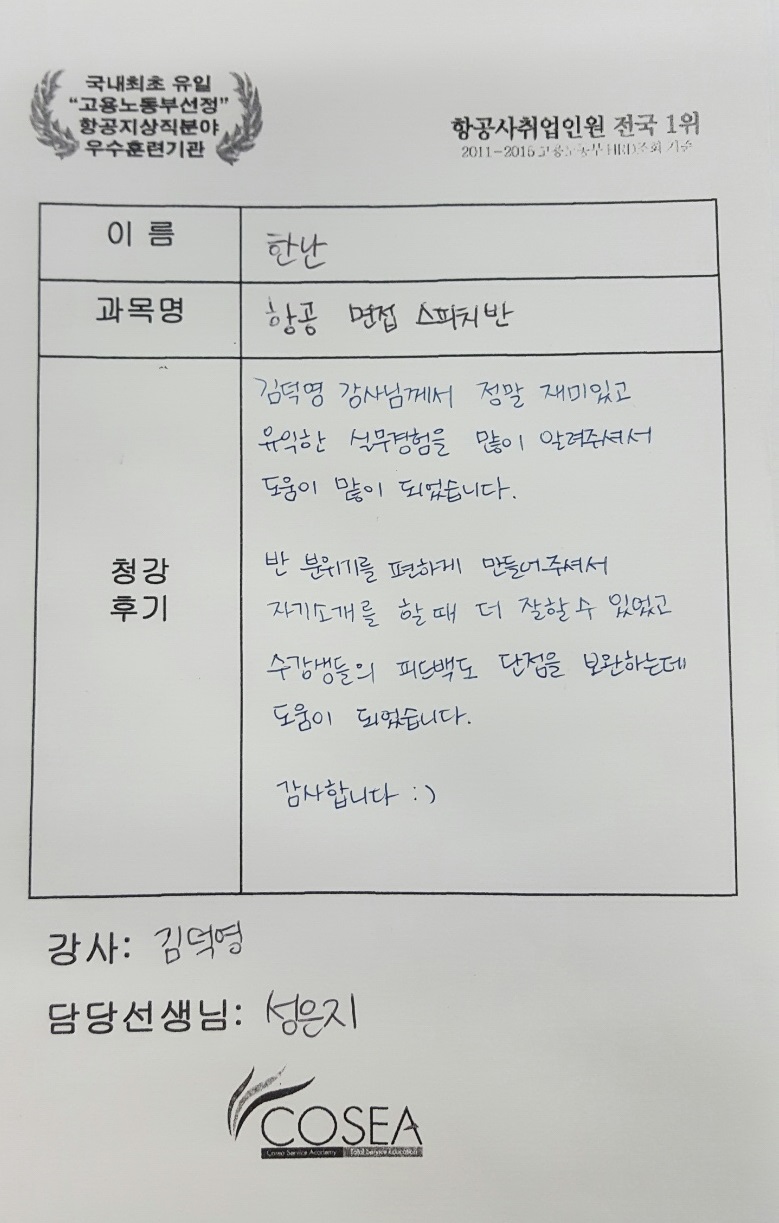 국내최초 유일
"고용노동부선정"
항공지상직분야
우수훈련기관
항공사취업인원 전국 1위
2011-2015 고용노동부 HRD조회 기준
이 름
한난
과목명
항공 면접 스피치반
청강
후기
김덕영 강사님께서 정말 재미있고
유익한 실무경험을 많이 알려주셔서
도움이 많이 되었습니다.
반 분위기를 편하게 만들어주셔서
자기소개를 할 때 더 잘할 수 있었고
수강생들의 피드백도 단점을 보완하는데
도움이 되었습니다.
감사합니다 :)
강사: 김덕영
담당선생님: 성은지
COSEA
Corea Service Academy Total Service Education